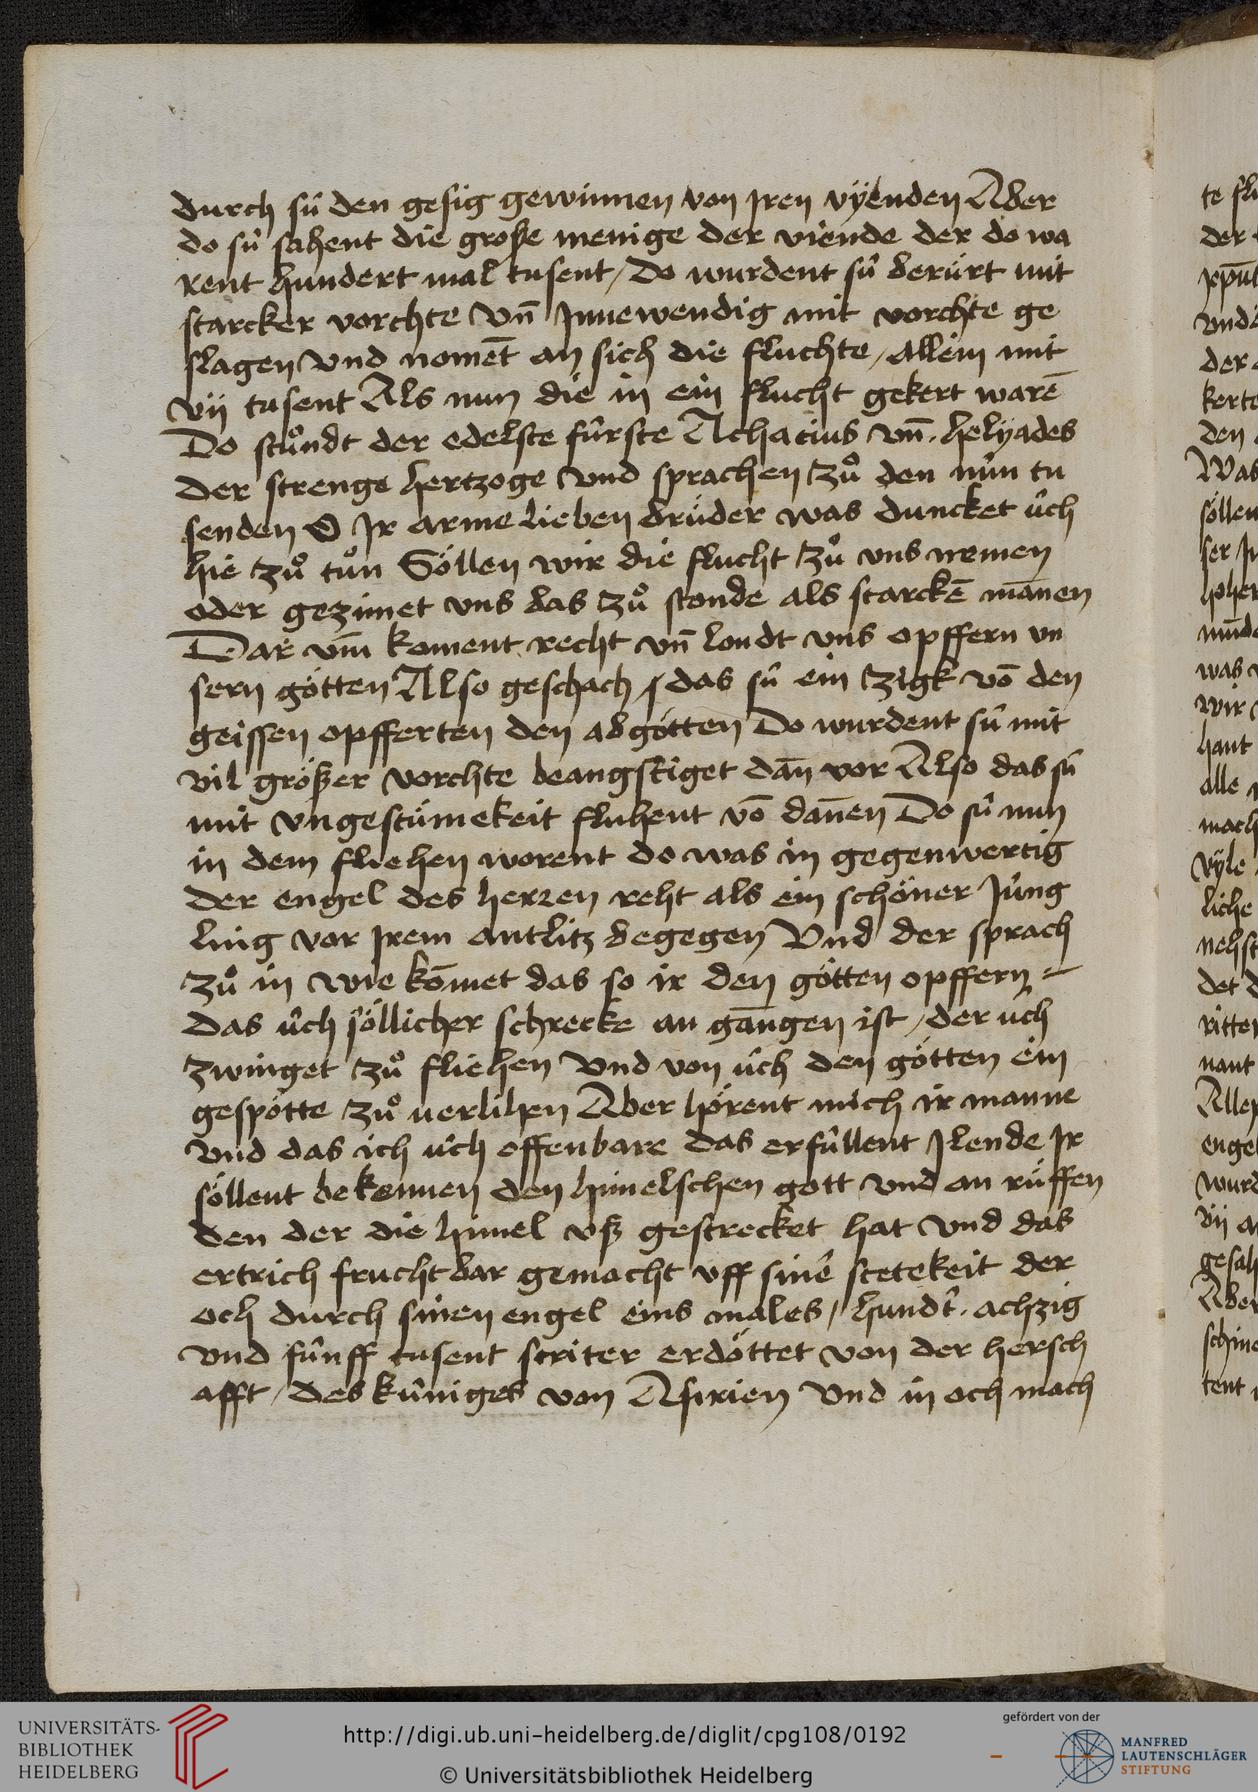 durch sú den gesig gewinnen von Jren vÿenden Aber
do sú sahent die große menige der viende der do wa
rent hundert mal tusent / Do wurdent sú berúrt mit
starcker vorchte vn̄ Jnnewendig mit vorchte ge
slagen vnd noment̄ an sich die fluchte / allein mit
vij tusent Als nun die in ein flucht gekert warē
Do stuͦndt der edelste fúrste Achacius vn̄ . helyades
der strenge hertzoge vnd sprachen zuͦ den nún tu
senden O Jr arme lieben brúder was duncket úch
hie zuͦ tuͦn Söllen wir die flucht zuͦ vns nemen
oder gezimet vns das zuͦ stonde als starckē mānen
Dar vm̄ koment recht vn̄ londt vns opffern vn
sern götten Also geschach / das sú ein zigk vō den
geissen opfferten den abgötten Do wurdent sú mit
vil größer vorchte beangstiget dan̄ vor Also das sú
mit vngestúmekeit fluhent vō dan̄en Do sú nun
in dem fliehen worent do was in gegenwertig
der engel des herren reht als ein schöner Júng
ling vor Jrem antlitz begegen Vnd der sprach
zuͦ in wie kom̄et das so ir den götten opffern
das úch söllicher schrecke an gangen ist / der úch
zwinget zuͦ fliehen vnd von úch den götten ein
gespötte zuͦ verlihen Aber hörent mich ir manne
vnd das ich úch offenbare das erfúllent Jlende Jr
söllent bekennen den himelschen gott vnd an rúffen
den der die himel vß gestrecket hat vnd das
ertrich fruchtbar gemacht vff sinē stetekeit der
och durch sinen engel eins males / hundt̄ . achzig
vnd fúnff tusent striter erdöttet von der hersch
afft / des kúniges von Asirien vnd in och mach
te
der
vnd
der
kerte
den
Was
söllen
ser
hoher
was
wir
hant
alle
mach
vÿle
liche
det
ritter
nant
Aller
engel
wurd
vij
Aber
tent
UNIVERSITÄTS-
BIBLIOTHEK
HEIDELBERG
http://digi.ub.uni-heidelberg.de/diglit/cpg108/0192
© Universitätsbibliothek Heidelberg
gefördert von der
MANFRED
LAUTENSCHLÄGER
STIFTUNG